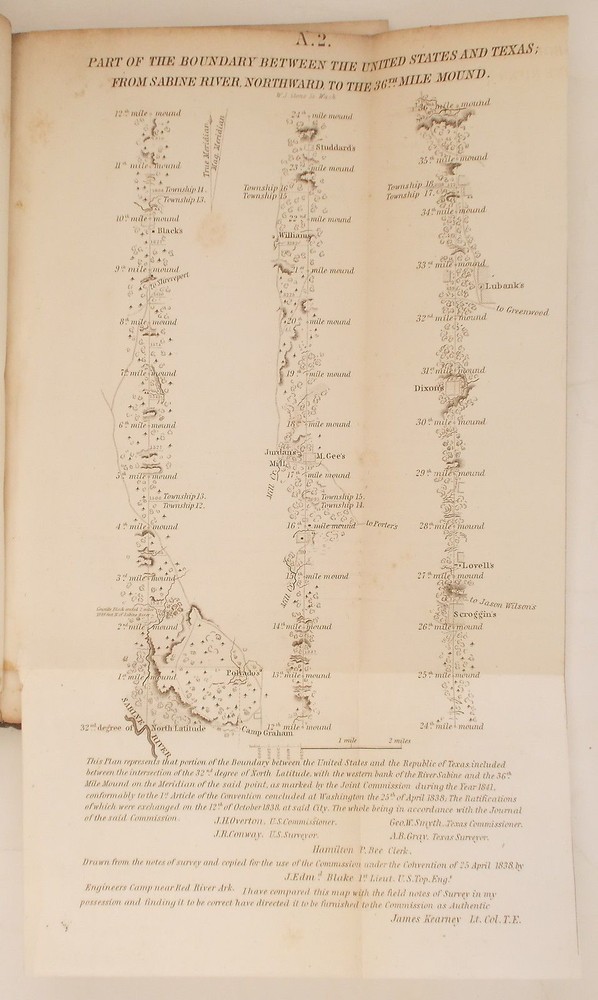 A.2.
PART OF THE BOUNDARY BETWEEN THE UNITED STATES AND TEXAS;
FROM SABINE RIVER, NORTHWARD, TO THE 36TH MILE MOUND.
12th mile mound
11th mile mound
Township 14.
Township 13.
10th mile mound
Black's
9th mile mound
to Shreveport
8th mile mound
7th mile mound
6th mile mound
5th mile mound
Township 13.
Township 12.
4th mile mound
3rd mile mound
2nd mile mound
1st mile mound
Polvado's
32nd degree of North Latitude
Camp Graham
SABINE RIVER
True Meridian
Mag. Meridian
24th mile mound
Studdard's
23rd mile mound
Township 16
Township 15
22nd mile mound
William's
21st mile mound
20th mile mound
19th mile mound
18th mile mound
Jordan's Mill.
M. Gee's
17th mile mound
Mill Cr.
Township 15.
Township 14.
16th mile mound
to Porters
15th mile mound
Mill Cr.
14th mile mound
13th mile mound
12th mile mound
36th mile mound
35th mile mound
Township 18.
Township 17.
34th mile mound
33rd mile mound
Lubank's
to Greenwood
32nd mile mound
31st mile mound
Dixon's
30th mile mound
29th mile mound
28th mile mound
Lovell's
27th mile mound
to Jason Wilson's
Scroggin's
26th mile mound
25th mile mound
24th mile mound
1 mile
2 miles
This Plan represents that portion of the Boundary between the United States and the Republic of Texas, included
between the intersection of the 32nd degree of North Latitude, with the western bank of the River Sabine and the 36th
Mile Mound on the Meridian of the said point, as marked by the Joint Commission during the Year 1841,
conformably to the 1st Article of the Convention concluded at Washington the 25th of April 1838, The Ratifications
of which were exchanged on the 12th of October 1838, at said City. The whole being in accordance with the Journal
of the said Commission.
J.H. Overton, U.S. Commissioner.
Geo. W. Smyth, Texas Commissioner.
J.R. Conway, U.S. Surveyor.
A.B. Gray, Texas Surveyor.
Hamilton P. Bee Clerk.
Drawn from the notes of survey and copied for the use of the Commission under the Convention of 25 April 1838, by
J. Edmd. Blake 1st Lieut. U.S. Top. Engs.
Engineers Camp near Red River Ark. I have compared this map with the field notes of Survey in my
possession and finding it to be correct have directed it to be furnished to the Commission as Authentic
James Kearney Lt. Col. T.E.